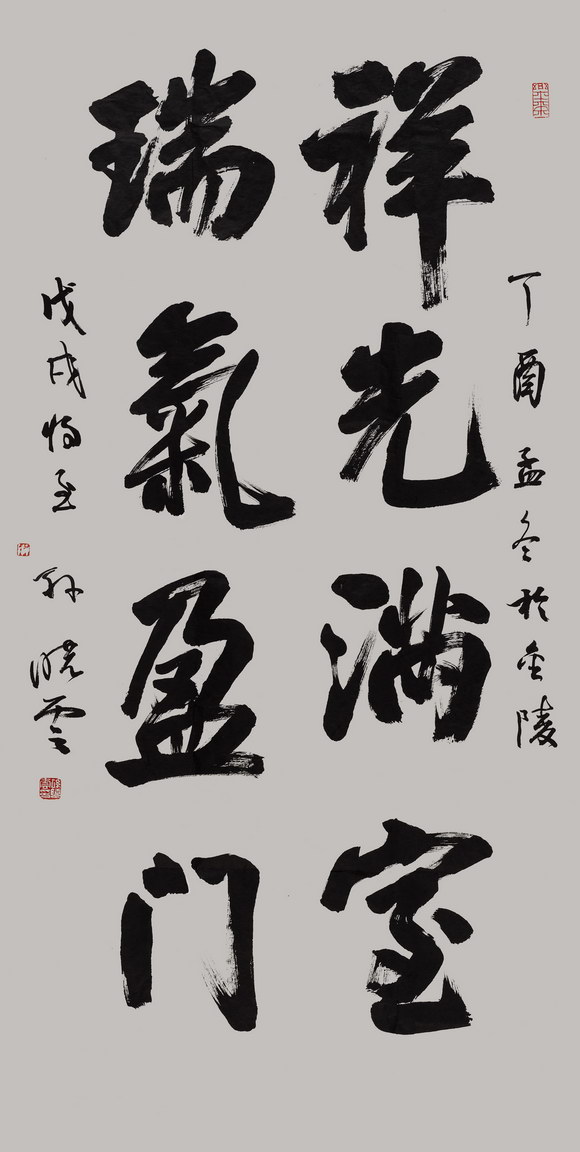 丁酉孟冬於金陵
祥光滿室
瑞氣盈门
戊戌将至
孙晓雲